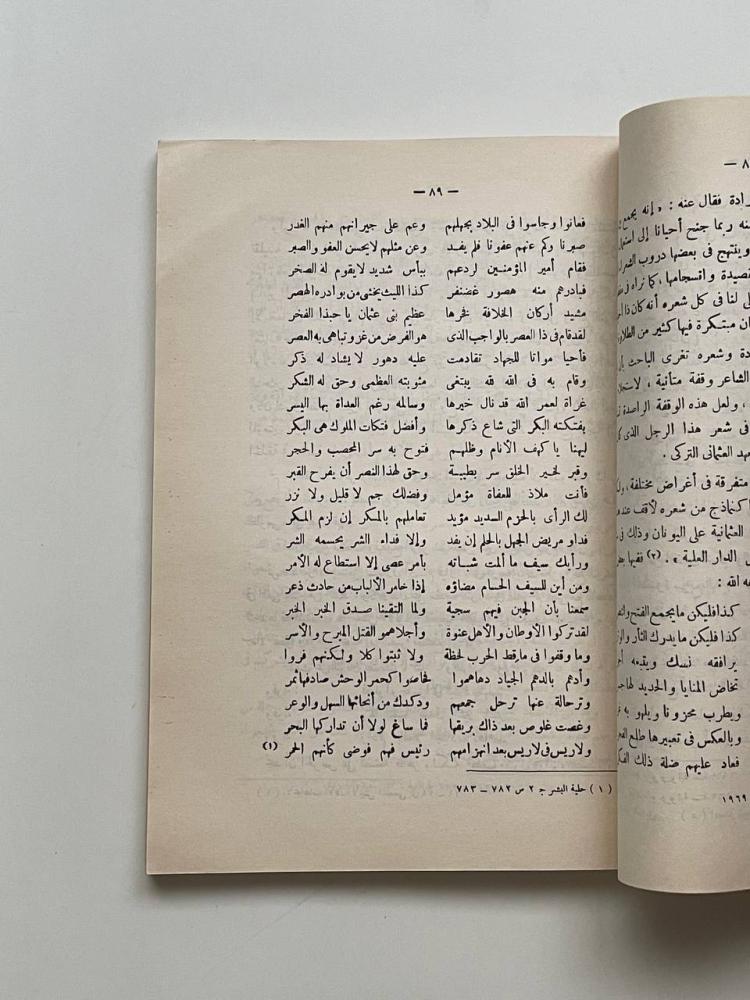 — ٨
رادة فقال عنه : « إنه يجمع
نه ربما جنح أحيانا إلى
وينتهج فى بعضها دروب
قصيدة وانسجامها ، كما نراه فى
لنا فى كل شعره أنه كان ذا
ن مبتكرة فيها كثير من
دة وشعره تغرى الباحث
الشاعر وقفة متأنية ،
، ولعل هذه الوقفة الراصدة
فى شعر هذا الرجل الذى
هد العثمانى التركى .
متفرقة فى أغراض مختلفة ،
كنماذج من شعره لأقف عند
العثمانية على اليونان وذلك فى
الدار العلية » . (٢) ففيها
ه الله :
كذا فليكن ما يجمع الفتح
كذا فليكن ما يدرك الثأر
يرافقه نسك ويقدمه
تخاض المنايا والحديد
ويطرب محزونا ويلهو به
وبالعكس فى تعبيرها طلع
فعاد عليهم ضلة ذلك
١٩٦٩
— ٨٩ —
فعانوا وجاسوا فى البلاد بجهلهم وعم على جيرانهم منهم الغدر
صبرنا وكم عنهم عفونا فلم يفد وعن مثلهم لايحسن العفو والصبر
فقام أمير المؤمنين لردعهم ببأس شديد لايقوم له الصخر
فبادرهم منه هصور غضنفر كذا الليث يخشى من بوادره الهصر
مشيد أركان الخلافة فخرها عظيم بنى عثمان يا حبذا الفخر
لقدقام فى ذا العصر بالواجب الذى هو الفرض من غزو تباهى به العصر
فأحيا مواتا للجهاد تقادمت عليه دهور لا يشاد له ذكر
وقام به فى الله لله يبتغى مثوبته العظمى وحق له الشكر
غزاة لعمر الله قد نال خيرها وسالمه رغم العداة بها اليسر
بفتكته البكر التى شاع ذكرها وأفضل فتكات الملوك هى البكر
ليهنا يا كهف الأنام وظلهم فتوح به سر المحصب والحجر
وقبر لخير الخلق سر بطيبة وحق لهذا النصر أن يفرح القبر
فأنت ملاذ للعفاة مؤمل وفضلك جم لا قليل ولا نزر
لك الرأى بالحزم السديد مؤيد تعاملهم بالمكر إن لزم المكر
فداو مريض الجهل بالحلم إن يفد وإلا فداء الشر يحسمه الشر
ورأيك سيف ما ألمت شباته بأمر عصى إلا استطاع له الأمر
ومن أين للسيف الحسام مضاؤه إذا خامر الألباب من حادث ذعر
سمعنا بأن الجبن فيهم سجية ولما التقينا صدق الخبر الخبر
لقدتركوا الأوطان والأهل عنوة وأجلاهمو القتل المبرح والأسر
وما وقفوا فى مازقط الحرب لحظة ولا ثبتوا كلا ولكنهم فروا
وأدهم بالدهم الجياد دهاهموا فحاصوا كحمر الوحش صادفها نمر
وترحالة عنها ترحل جمعهم ودكدك من أنحائها السهل والوعر
وغصت غلوص بعد ذاك بريقها فما ساغ لولا أن تداركها البحر
ولاريس فى لاريس بعد انهزامهم رئيس فهم فوضى كأنهم الحمر (١)
( ١ ) حلية البشر ج ٢ ص ٧٨٢ — ٧٨٣